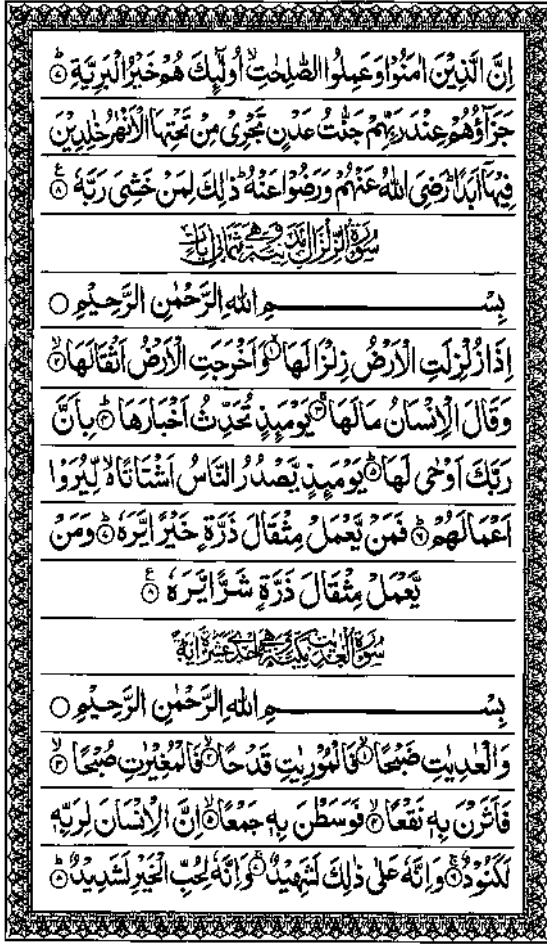 اِنَّ الَّذِيْنَ اٰمَنُوْا وَعَمِلُوا الصّٰلِحٰتِ ۙ اُولٰٓئِكَ هُمْ خَيْرُ الْبَرِيَّةِ ؕ۝۷
جَزَآؤُهُمْ عِنْدَ رَبِّهِمْ جَنّٰتُ عَدْنٍ تَجْرِيْ مِنْ تَحْتِهَا الْاَنْهٰرُ خٰلِدِيْنَ
فِيْهَاۤ اَبَدًا ؕ رَضِيَ اللّٰهُ عَنْهُمْ وَرَضُوْا عَنْهُ ؕ ذٰلِكَ لِمَنْ خَشِيَ رَبَّهٗ ۝۸ ع
سُوْرَةُ الزِّلْزَالِ مَدَنِيَّةٌ وَّهِيَ ثَمَانِيْ اٰيَاتٍ
بِسْمِ اللّٰهِ الرَّحْمٰنِ الرَّحِيْمِ ۝
اِذَا زُلْزِلَتِ الْاَرْضُ زِلْزَالَهَا ۙ۝۱ وَاَخْرَجَتِ الْاَرْضُ اَثْقَالَهَا ۙ۝۲
وَقَالَ الْاِنْسَانُ مَا لَهَا ۚ۝۳ يَوْمَئِذٍ تُحَدِّثُ اَخْبَارَهَا ؕ۝۴ بِاَنَّ
رَبَّكَ اَوْحٰى لَهَا ؕ۝۵ يَوْمَئِذٍ يَّصْدُرُ النَّاسُ اَشْتَاتًا ۙ۬ لِّيُرَوْا
اَعْمَالَهُمْ ؕ۝۶ فَمَنْ يَّعْمَلْ مِثْقَالَ ذَرَّةٍ خَيْرًا يَّرَهٗ ؕ۝۷ وَمَنْ
يَّعْمَلْ مِثْقَالَ ذَرَّةٍ شَرًّا يَّرَهٗ ۝۸ ع
سُوْرَةُ الْعٰدِيٰتِ مَكِّيَّةٌ وَّهِيَ اِحْدٰى عَشْرَةَ اٰيَةً
بِسْمِ اللّٰهِ الرَّحْمٰنِ الرَّحِيْمِ ۝
وَالْعٰدِيٰتِ ضَبْحًا ۙ۝۱ فَالْمُوْرِيٰتِ قَدْحًا ۙ۝۲ فَالْمُغِيْرٰتِ صُبْحًا ۙ۝۳
فَاَثَرْنَ بِهٖ نَقْعًا ۙ۝۴ فَوَسَطْنَ بِهٖ جَمْعًا ۙ۝۵ اِنَّ الْاِنْسَانَ لِرَبِّهٖ
لَكَنُوْدٌ ۚ۝۶ وَاِنَّهٗ عَلٰى ذٰلِكَ لَشَهِيْدٌ ۚ۝۷ وَاِنَّهٗ لِحُبِّ الْخَيْرِ لَشَدِيْدٌ ؕ۝۸